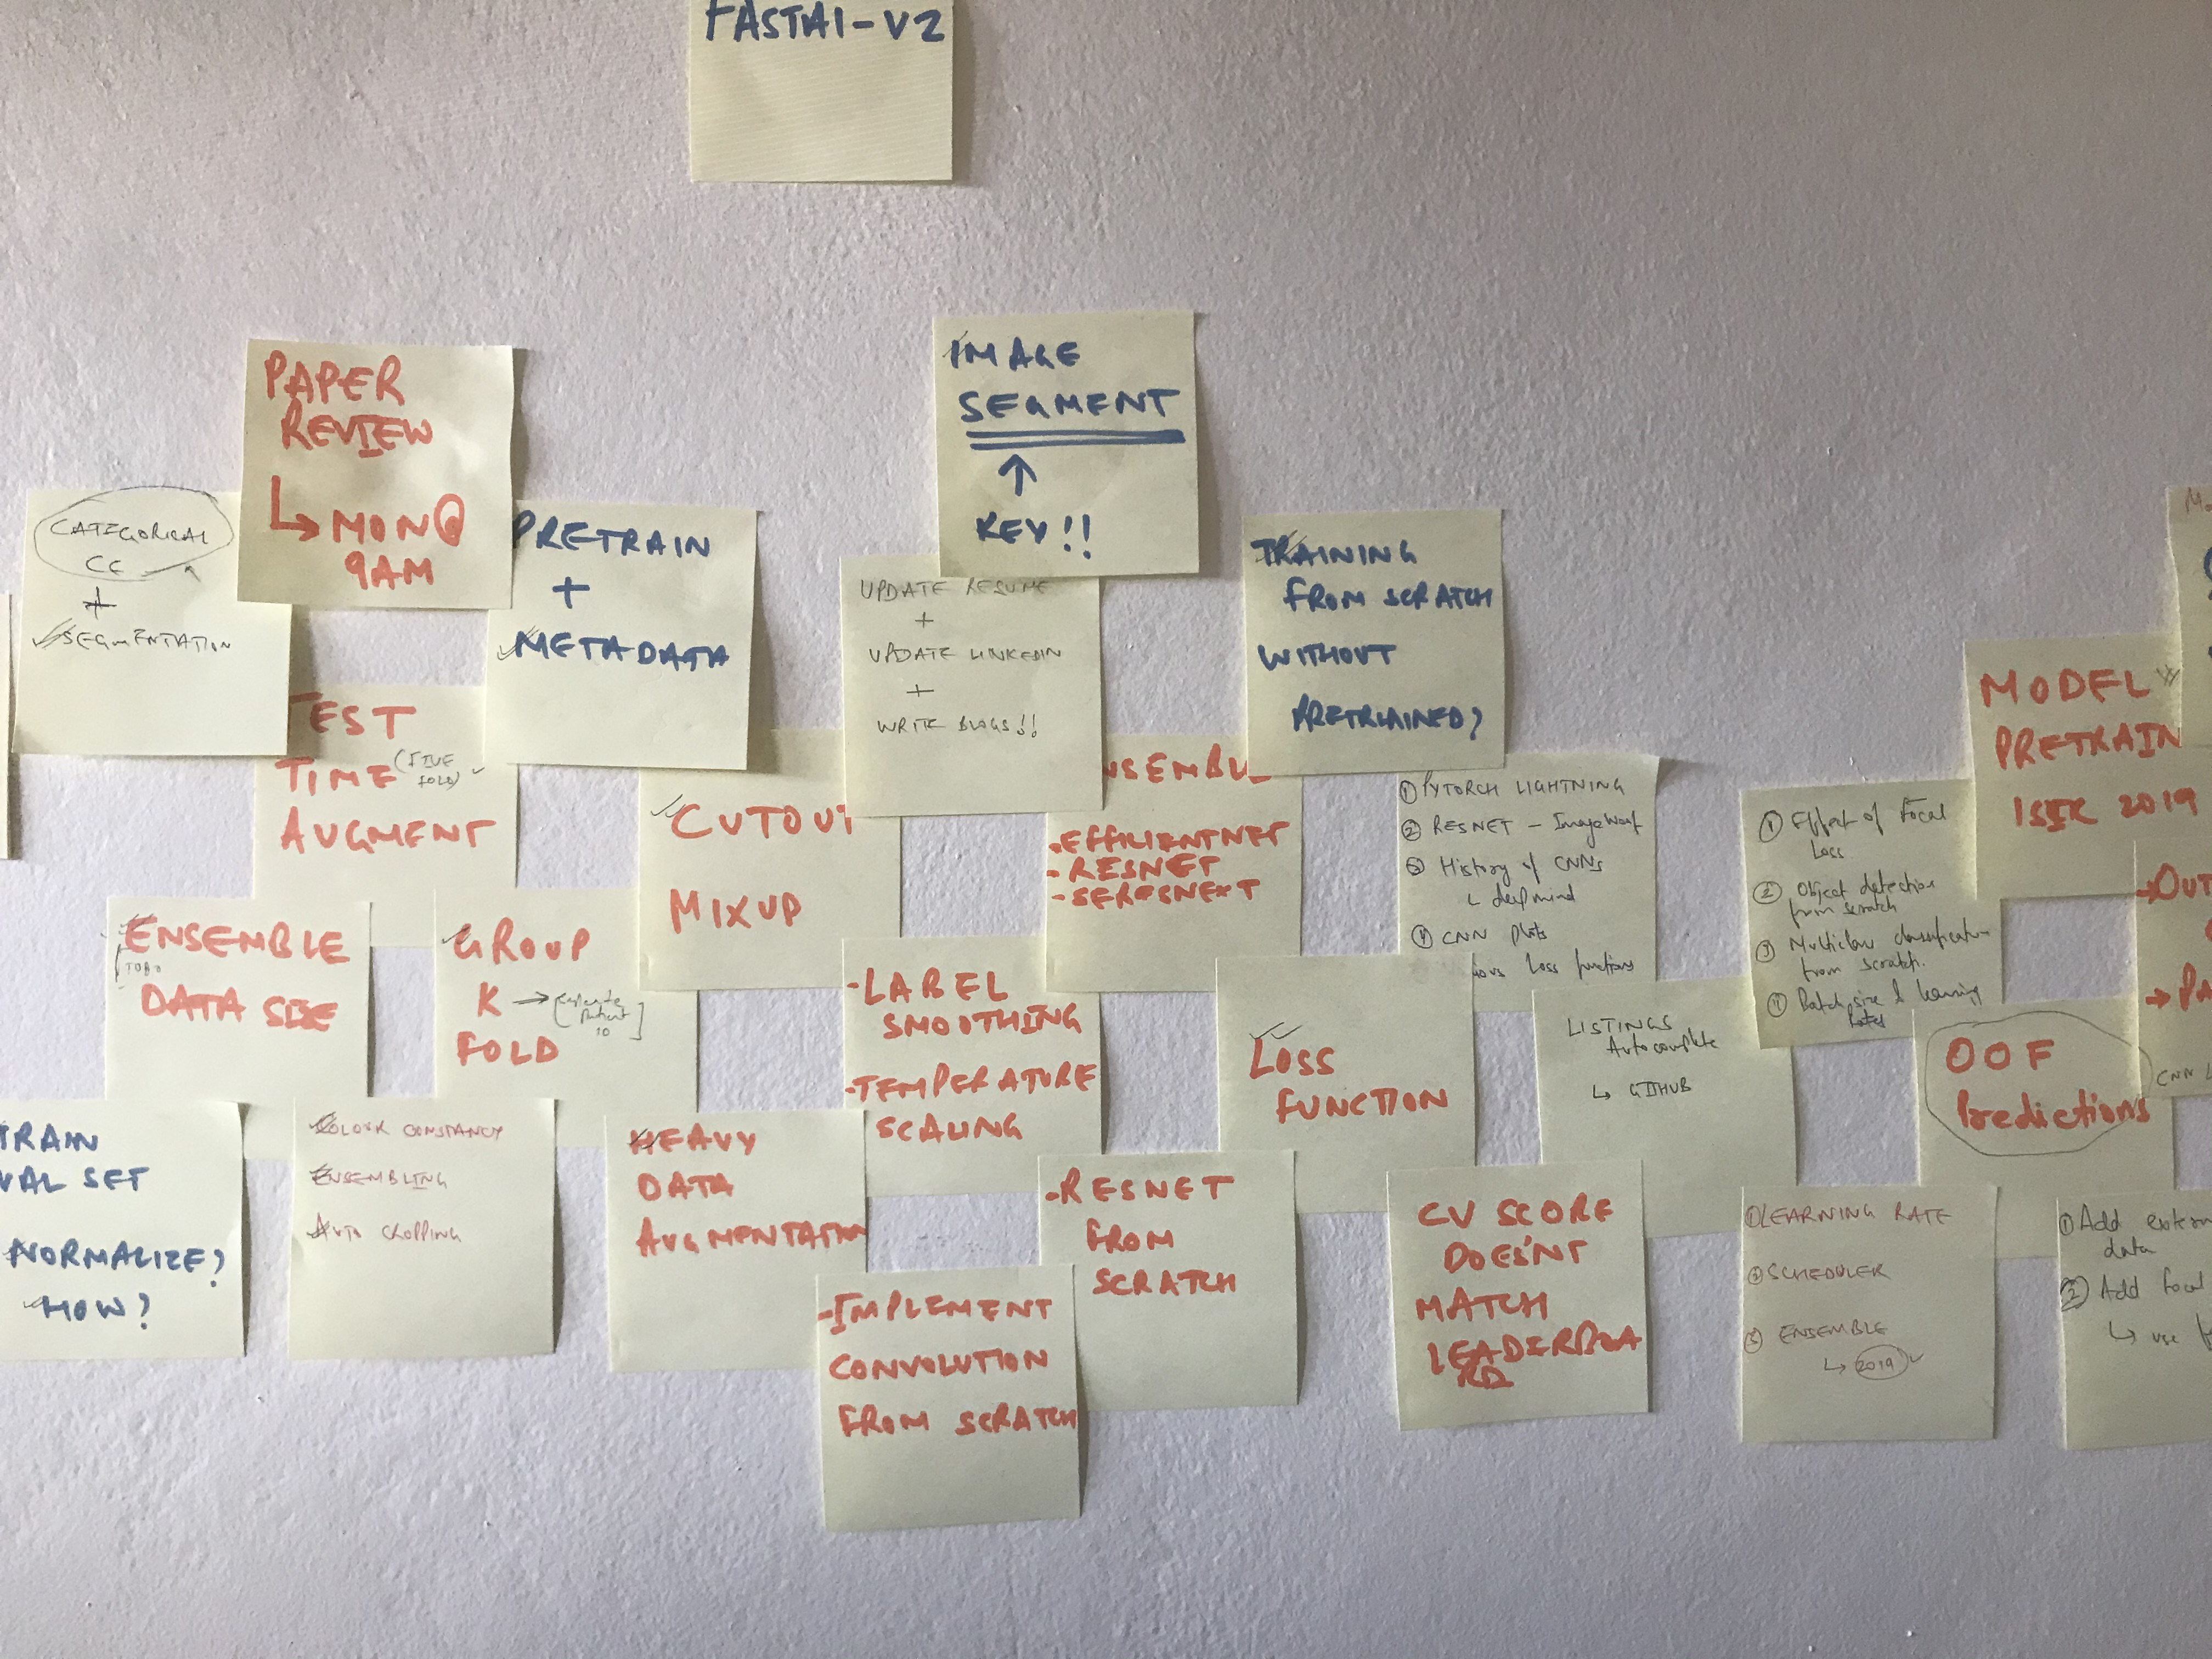 FASTAI-V2
IMAGE
SEGMENT
↑
KEY!!
PAPER
REVIEW
↳ MON@
9AM
CATEGORICAL
CE
+
SEGMENTATION
PRETRAIN
+
METADATA
UPDATE RESUME
+
UPDATE LINKEDIN
+
WRITE BLOGS!!
TRAINING
FROM SCRATCH
WITHOUT
PRETRAINED?
MODEL
PRETRAIN
ISIC 2019
TEST
TIME (FIVE
FOLD)
AUGMENT
CUTOUT
MIXUP
ENSEMBLE
-EFFICIENTNET
-RESNET
-SERESNEXT
① PYTORCH LIGHTNING
② RESNET - ImageWoof
③ History of CNNs
↳ deepmind
④ CNN plots
Loss functions
① Effect of Focal
Loss
② Object detection
from scratch
③ Multiclass classification
from scratch.
④ Batch size & learning
rates
ENSEMBLE
DATA SIZE
GROUP
K →
Patient
ID
FOLD
-LABEL
SMOOTHING
-TEMPERATURE
SCALING
LOSS
FUNCTION
LISTINGS
Autocomplete
↳ GITHUB
OOF
Predictions
→OUT
→PA
CNN
TRAIN
VAL SET
NORMALIZE?
HOW?
COLOUR CONSTANCY
ENSEMBLING
AUTO CROPPING
HEAVY
DATA
AUGMENTATION
-RESNET
FROM
SCRATCH
CV SCORE
DOES'NT
MATCH
LEADERBOA
RD
① LEARNING RATE
② SCHEDULER
③ ENSEMBLE
↳ 2019
① Add
data
② Add focal
↳ use
-IMPLEMENT
CONVOLUTION
FROM SCRATCH